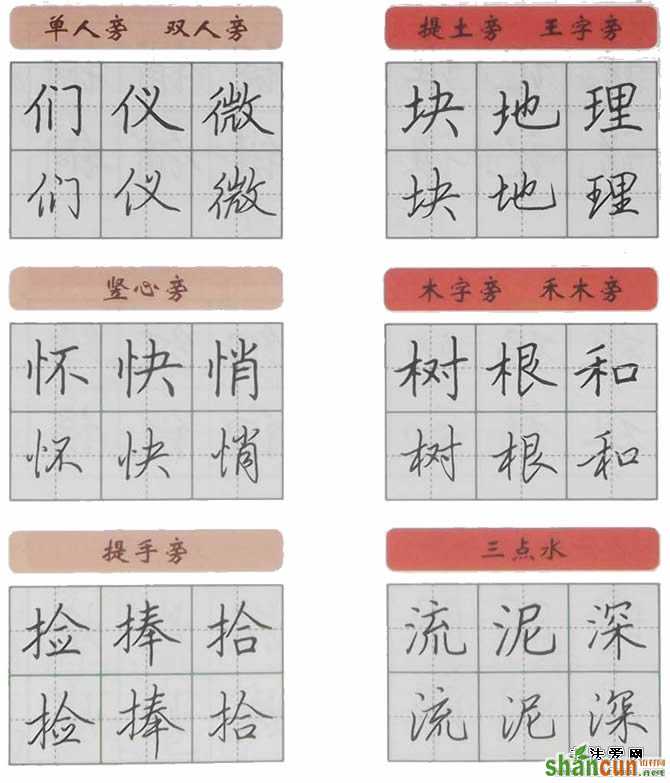 单人旁 双人旁
们仪微
们仪微
提土旁 王字旁
块地理
块地理
竖心旁
怀快悄
怀快悄
木字旁 禾木旁
树根和
树根和
提手旁
捡捧拾
捡捧拾
三点水
流泥深
流泥深
法爱网
shancun
.net